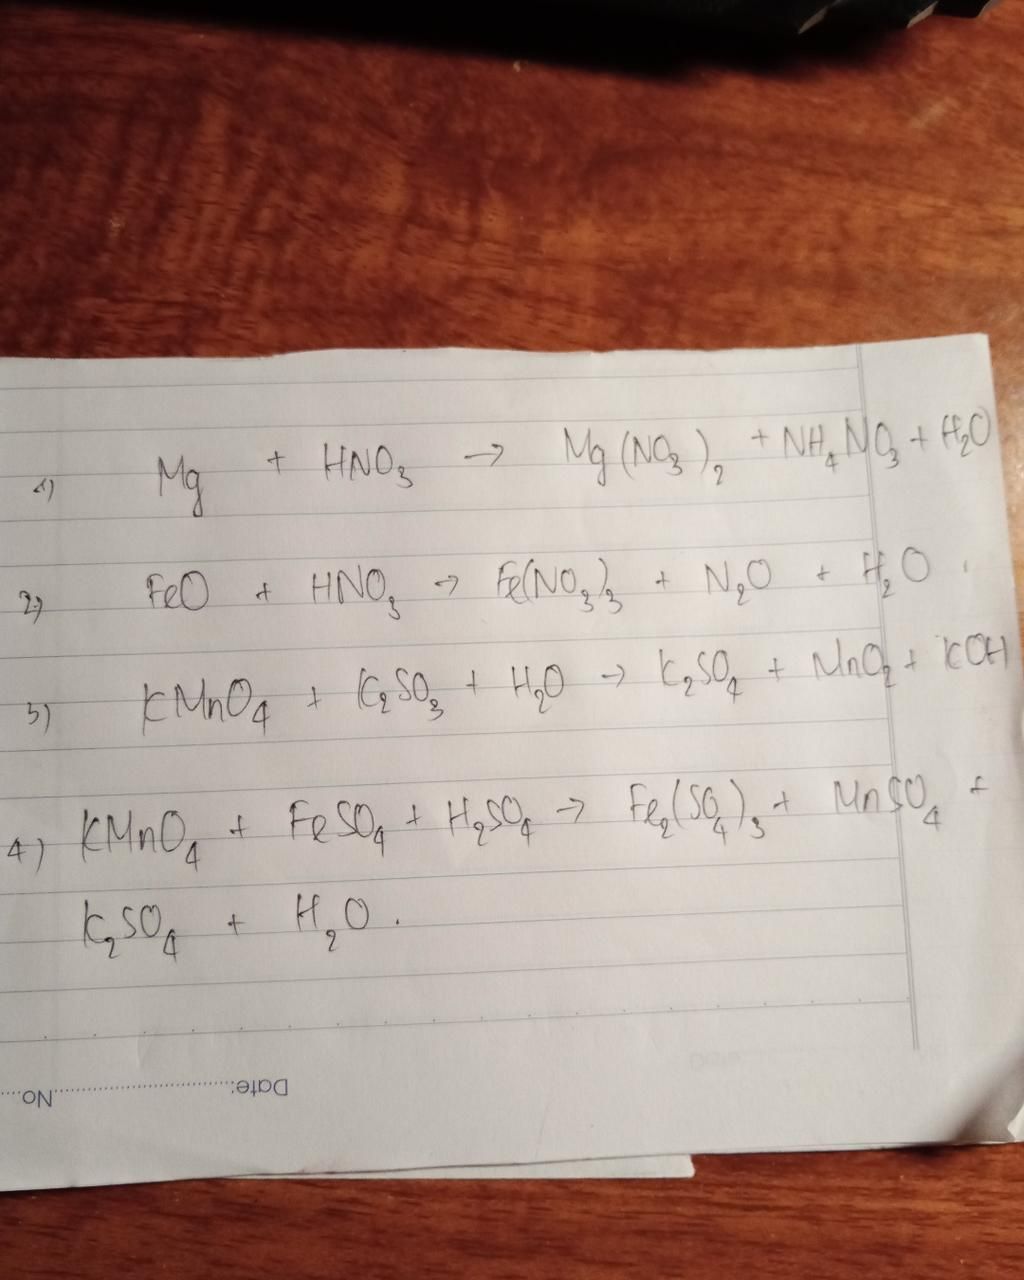 1) Mg + HNO₃ → Mg(NO₃)₂ + NH₄NO₃ + H₂O
2) FeO + HNO₃ → Fe(NO₃)₃ + N₂O + H₂O.
3) KMnO₄ + K₂SO₃ + H₂O → K₂SO₄ + MnO₂ + KOH
4) KMnO₄ + FeSO₄ + H₂SO₄ → Fe₂(SO₄)₃ + MnSO₄ +
K₂SO₄ + H₂O.
Date:..............................No....